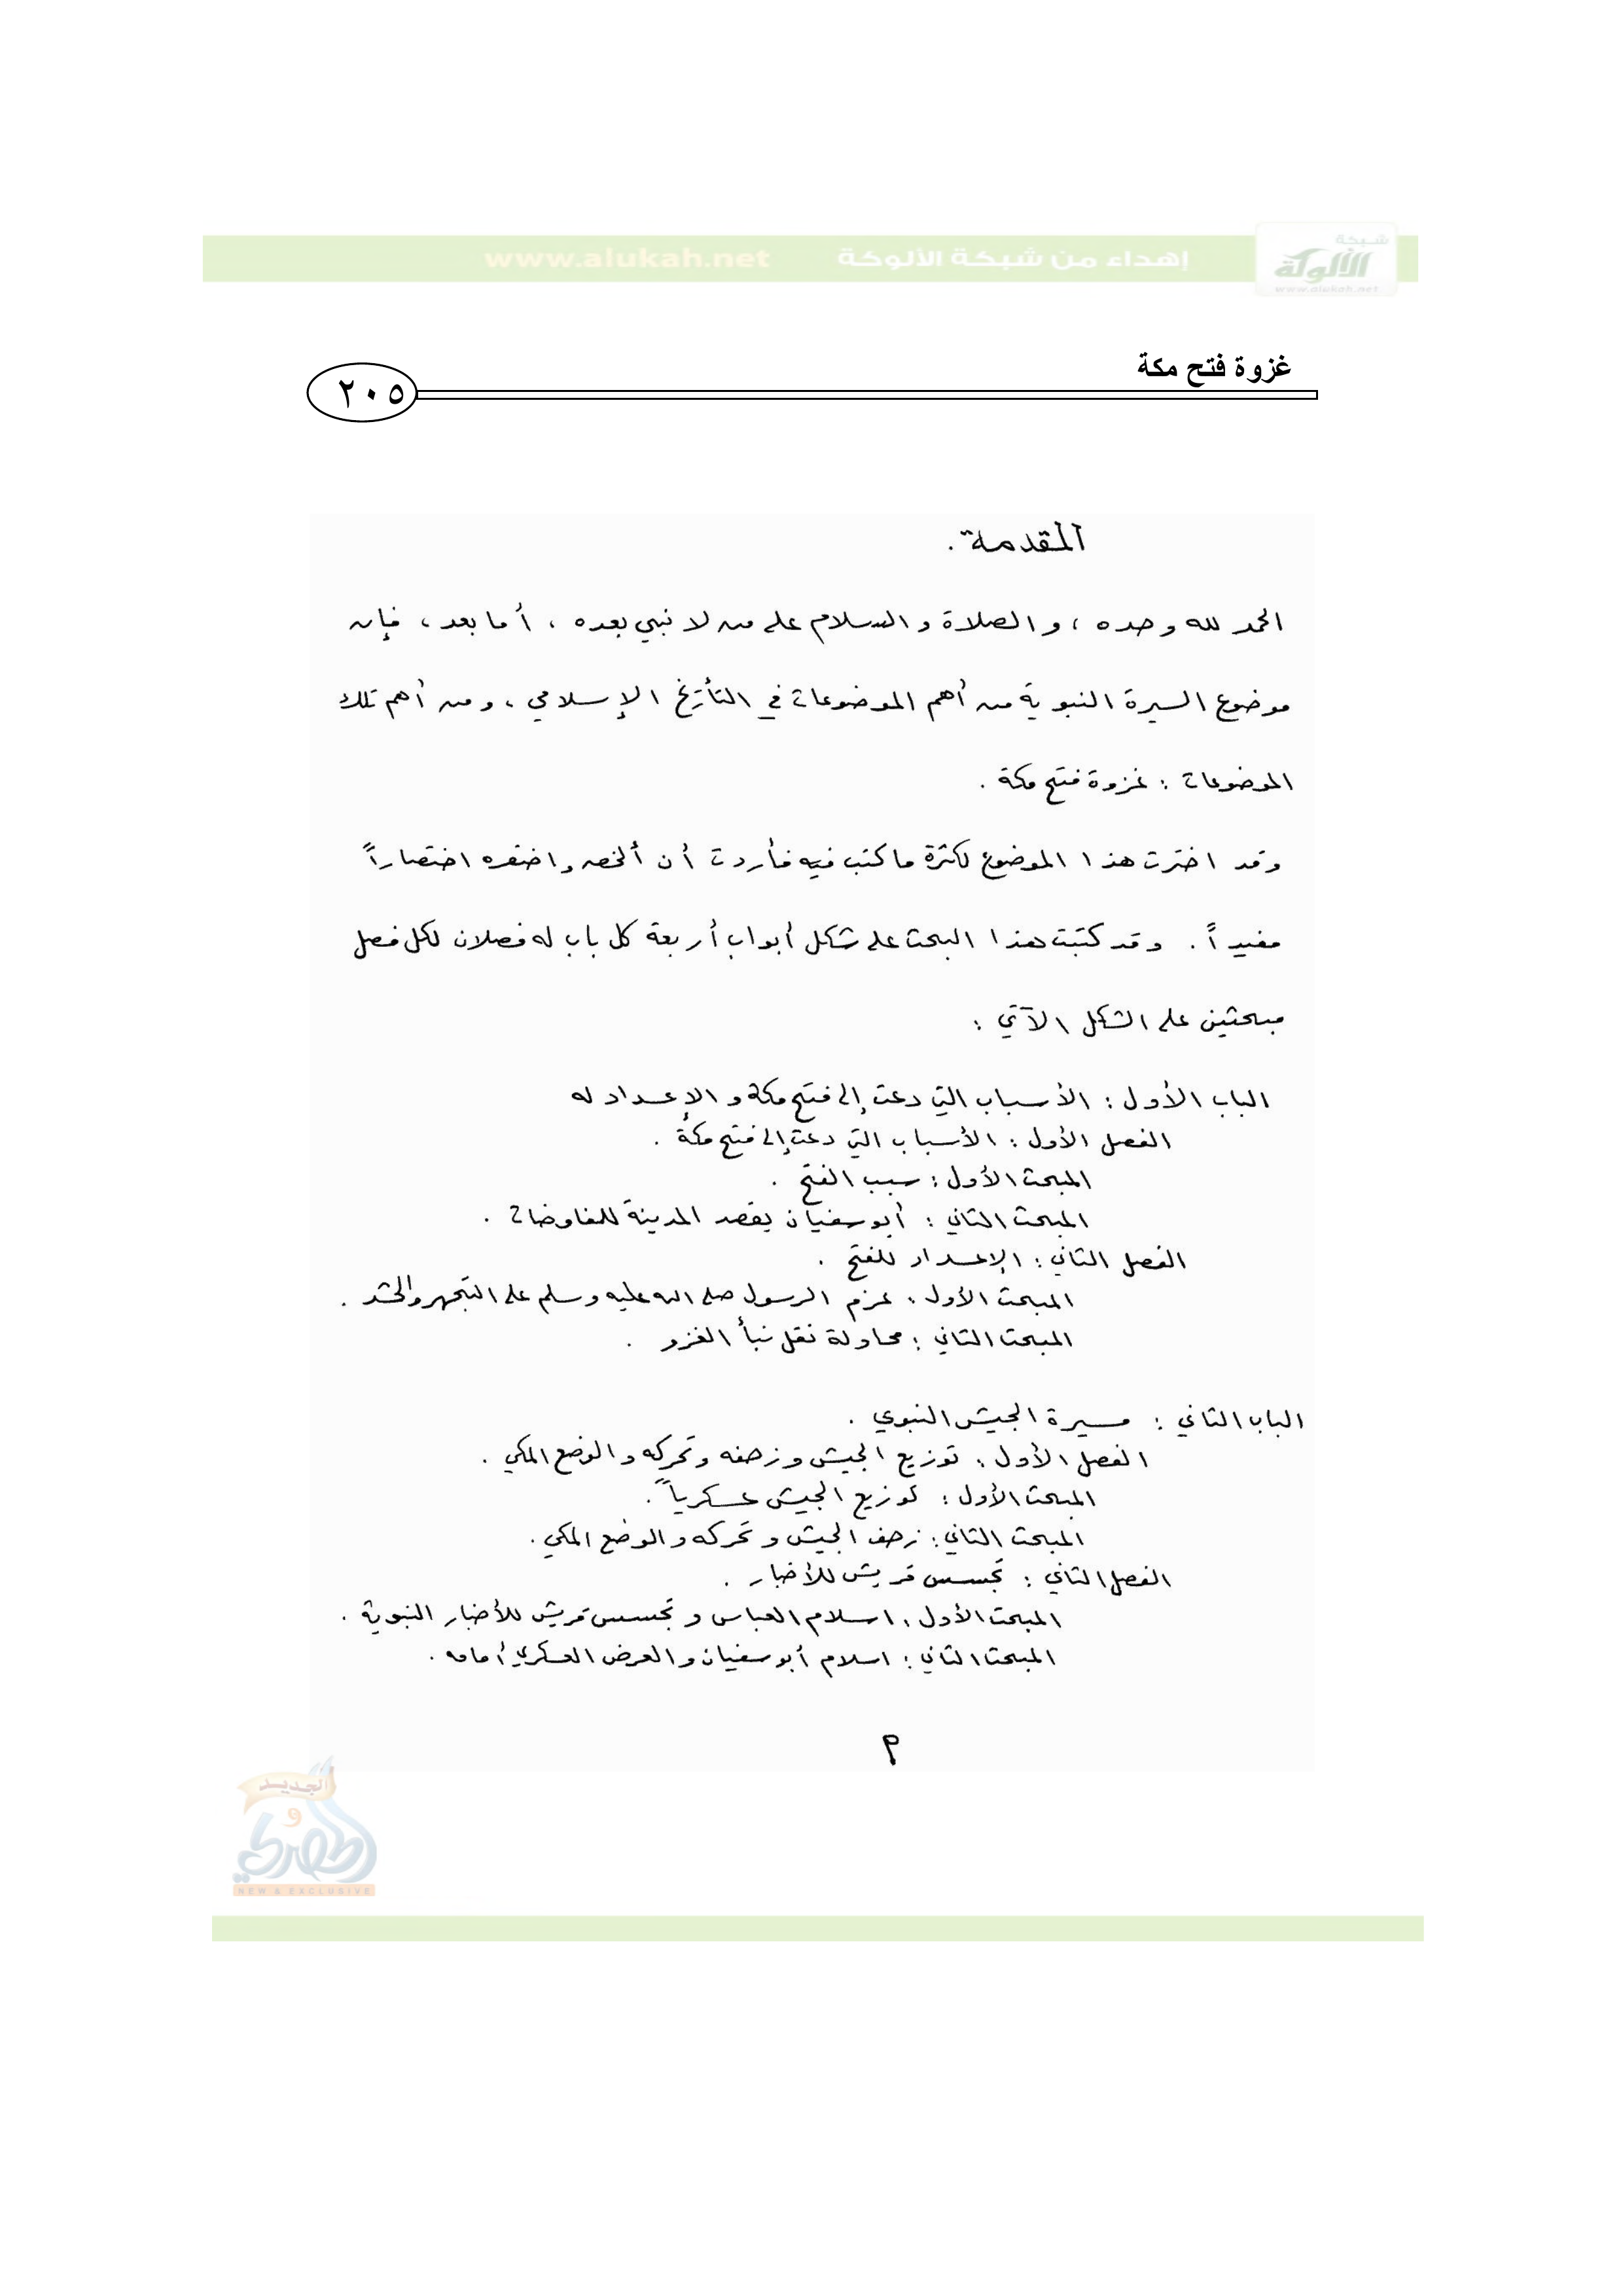 شبكة
الألوكة
www.alukah.net
إهداء من شبكة الألوكة www.alukah.net
غزوة فتح مكة
٢٠٥
المقدمة .
الحمد لله وحده ، والصلاة والسلام على من لا نبي بعده ، أما بعد ، فإن
موضوع السيرة النبوية من أهم الموضوعات في التأريخ الإسلامي ، ومن أهم تلك
الموضوعات : غزوة فتح مكة .
وقد اخترت هذا الموضوع لكثرة ما كتب فيه فأردت أن ألخصه واختصره اختصاراً
مفيداً . وقد كتبت هذا البحث على شكل أبواب أربعة كل باب له فصلان لكل فصل
مبحثين على الشكل الآتي :
الباب الأول : الأسباب التي دعت إلى فتح مكة والإعداد له
الفصل الأول : الأسباب التي دعت إلى فتح مكة .
المبحث الأول : سبب الفتح .
المبحث الثاني : أبو سفيان يقصد المدينة للمفاوضات .
الفصل الثاني : الإعداد للفتح .
المبحث الأول : عزم الرسول صلى الله عليه وسلم على التجهز والحشد .
المبحث الثاني : محاولة نقل نبأ الغزو .
الباب الثاني : مسيرة الجيش النبوي .
الفصل الأول : توزيع الجيش وزحفه وتحركه والوضع المكي .
المبحث الأول : توزيع الجيش عسكرياً .
المبحث الثاني : زحف الجيش وتحركه والوضع المكي .
الفصل الثاني : تجسس قريش للأخبار .
المبحث الأول : اسلام العباس وتجسس قريش للأخبار النبوية .
المبحث الثاني : اسلام أبو سفيان والعرض العسكري أمامه .
م
الجديد
و
الحصري
NEW & EXCLUSIVE